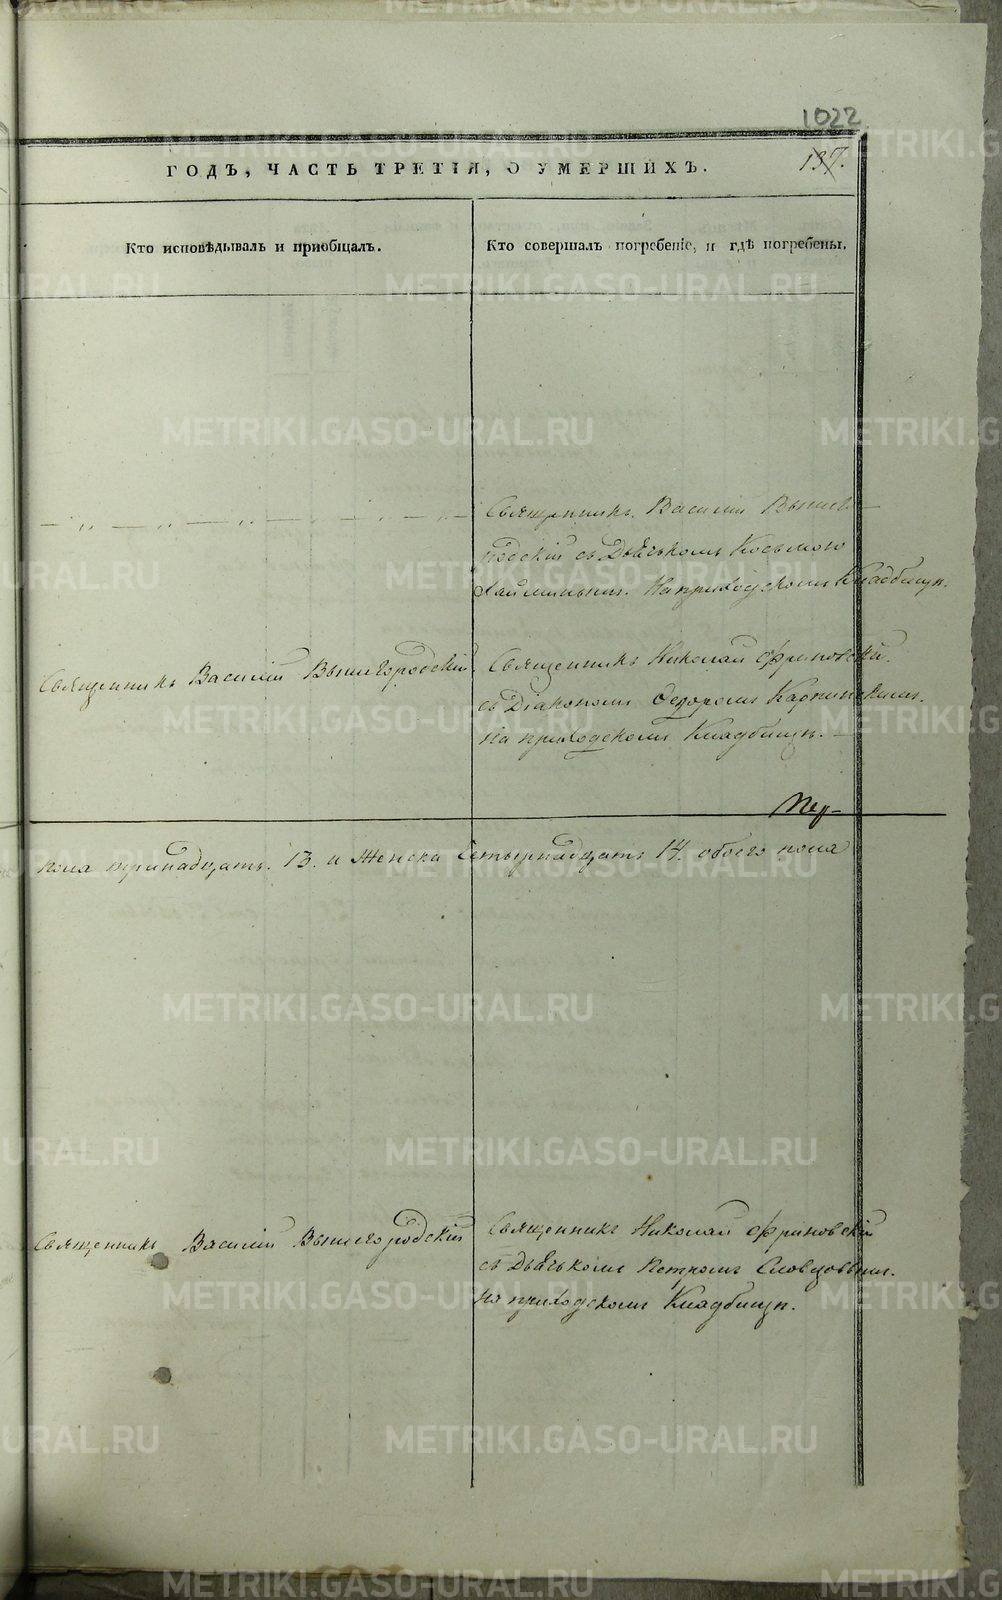 1022
137.
ГОДЪ, ЧАСТЬ ТРЕТІЯ, О УМЕРШИХЪ.
Кто исповѣдывалъ и пріобщалъ.
Кто совершалъ погребеніе, и гдѣ погребены.
Священникъ Василій Вышего-
родскій съ Дьячькомъ Косьмою
На приходскомъ Кладбищѣ.
Священникъ Василій Вышегородскій
Священникъ Николай Фриновскій
съ Діакономъ Ѳедоромъ Карпинскимъ.
на приходскомъ Кладбищѣ.
пола тринадцать. 13. и Женска Четырнадцать 14. обоего пола
Священникъ Василій Вышегородскій
Священникъ Николай Фриновскій
съ Дьячькомъ Петромъ Словцовымъ.
на приходскомъ Кладбищѣ.
METRIKI.GASO-URAL.RU